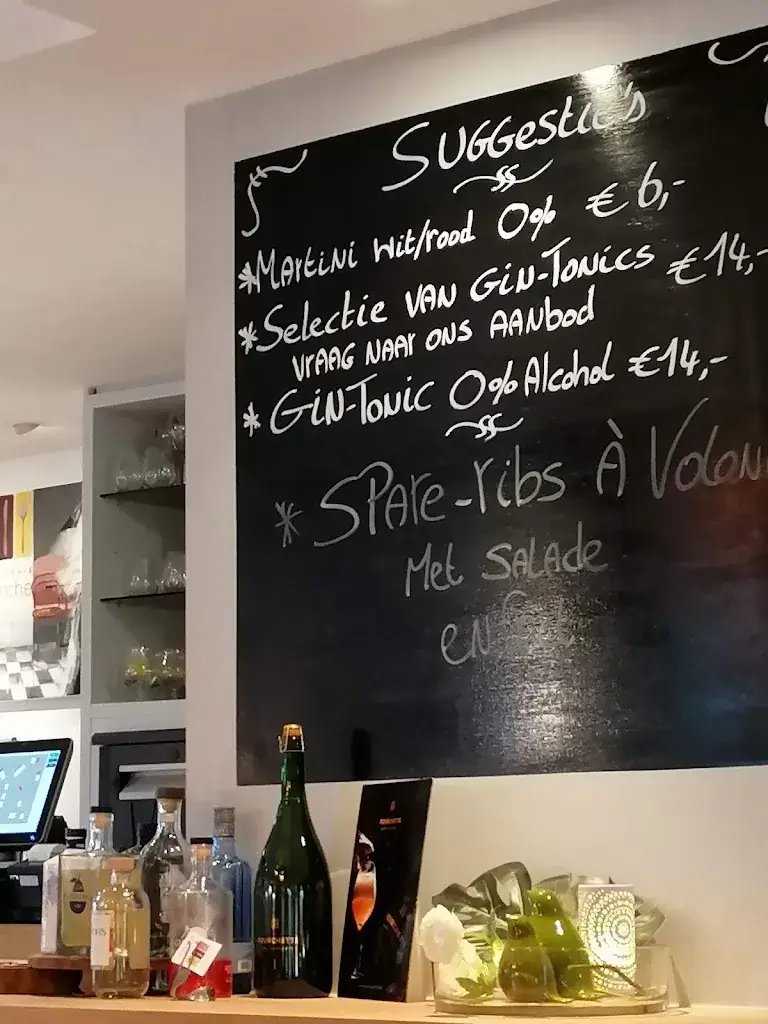 Suggestie's
*Martini wit/rood 0% €6,-
*Selectie van Gin-Tonics €14,-
vraag naar ons aanbod
*Gin-Tonic 0% Alcohol €14,-
*Spare-ribs À Volon
Met salade
en